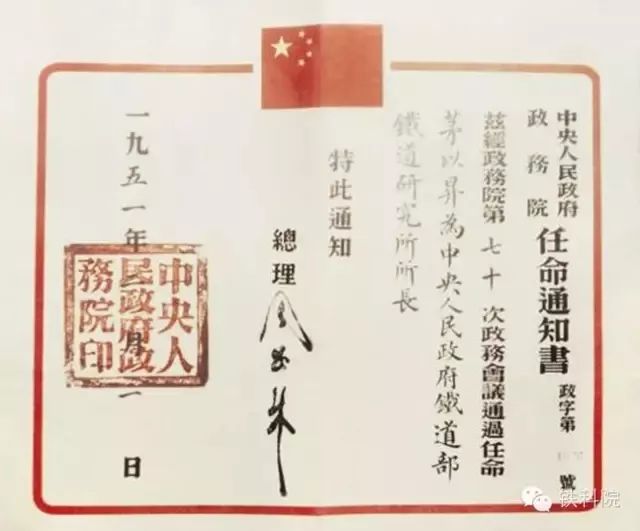 中央人民政府
政務院
任命通知書
政字第 號
茲經政務院第七十次政務會議通過任命
茅以昇為中央人民政府鐵道部
鐵道研究所所長
特此通知
總理 周恩来
一九五一年 月一日
中央人
民政府政
務院印
铁科院